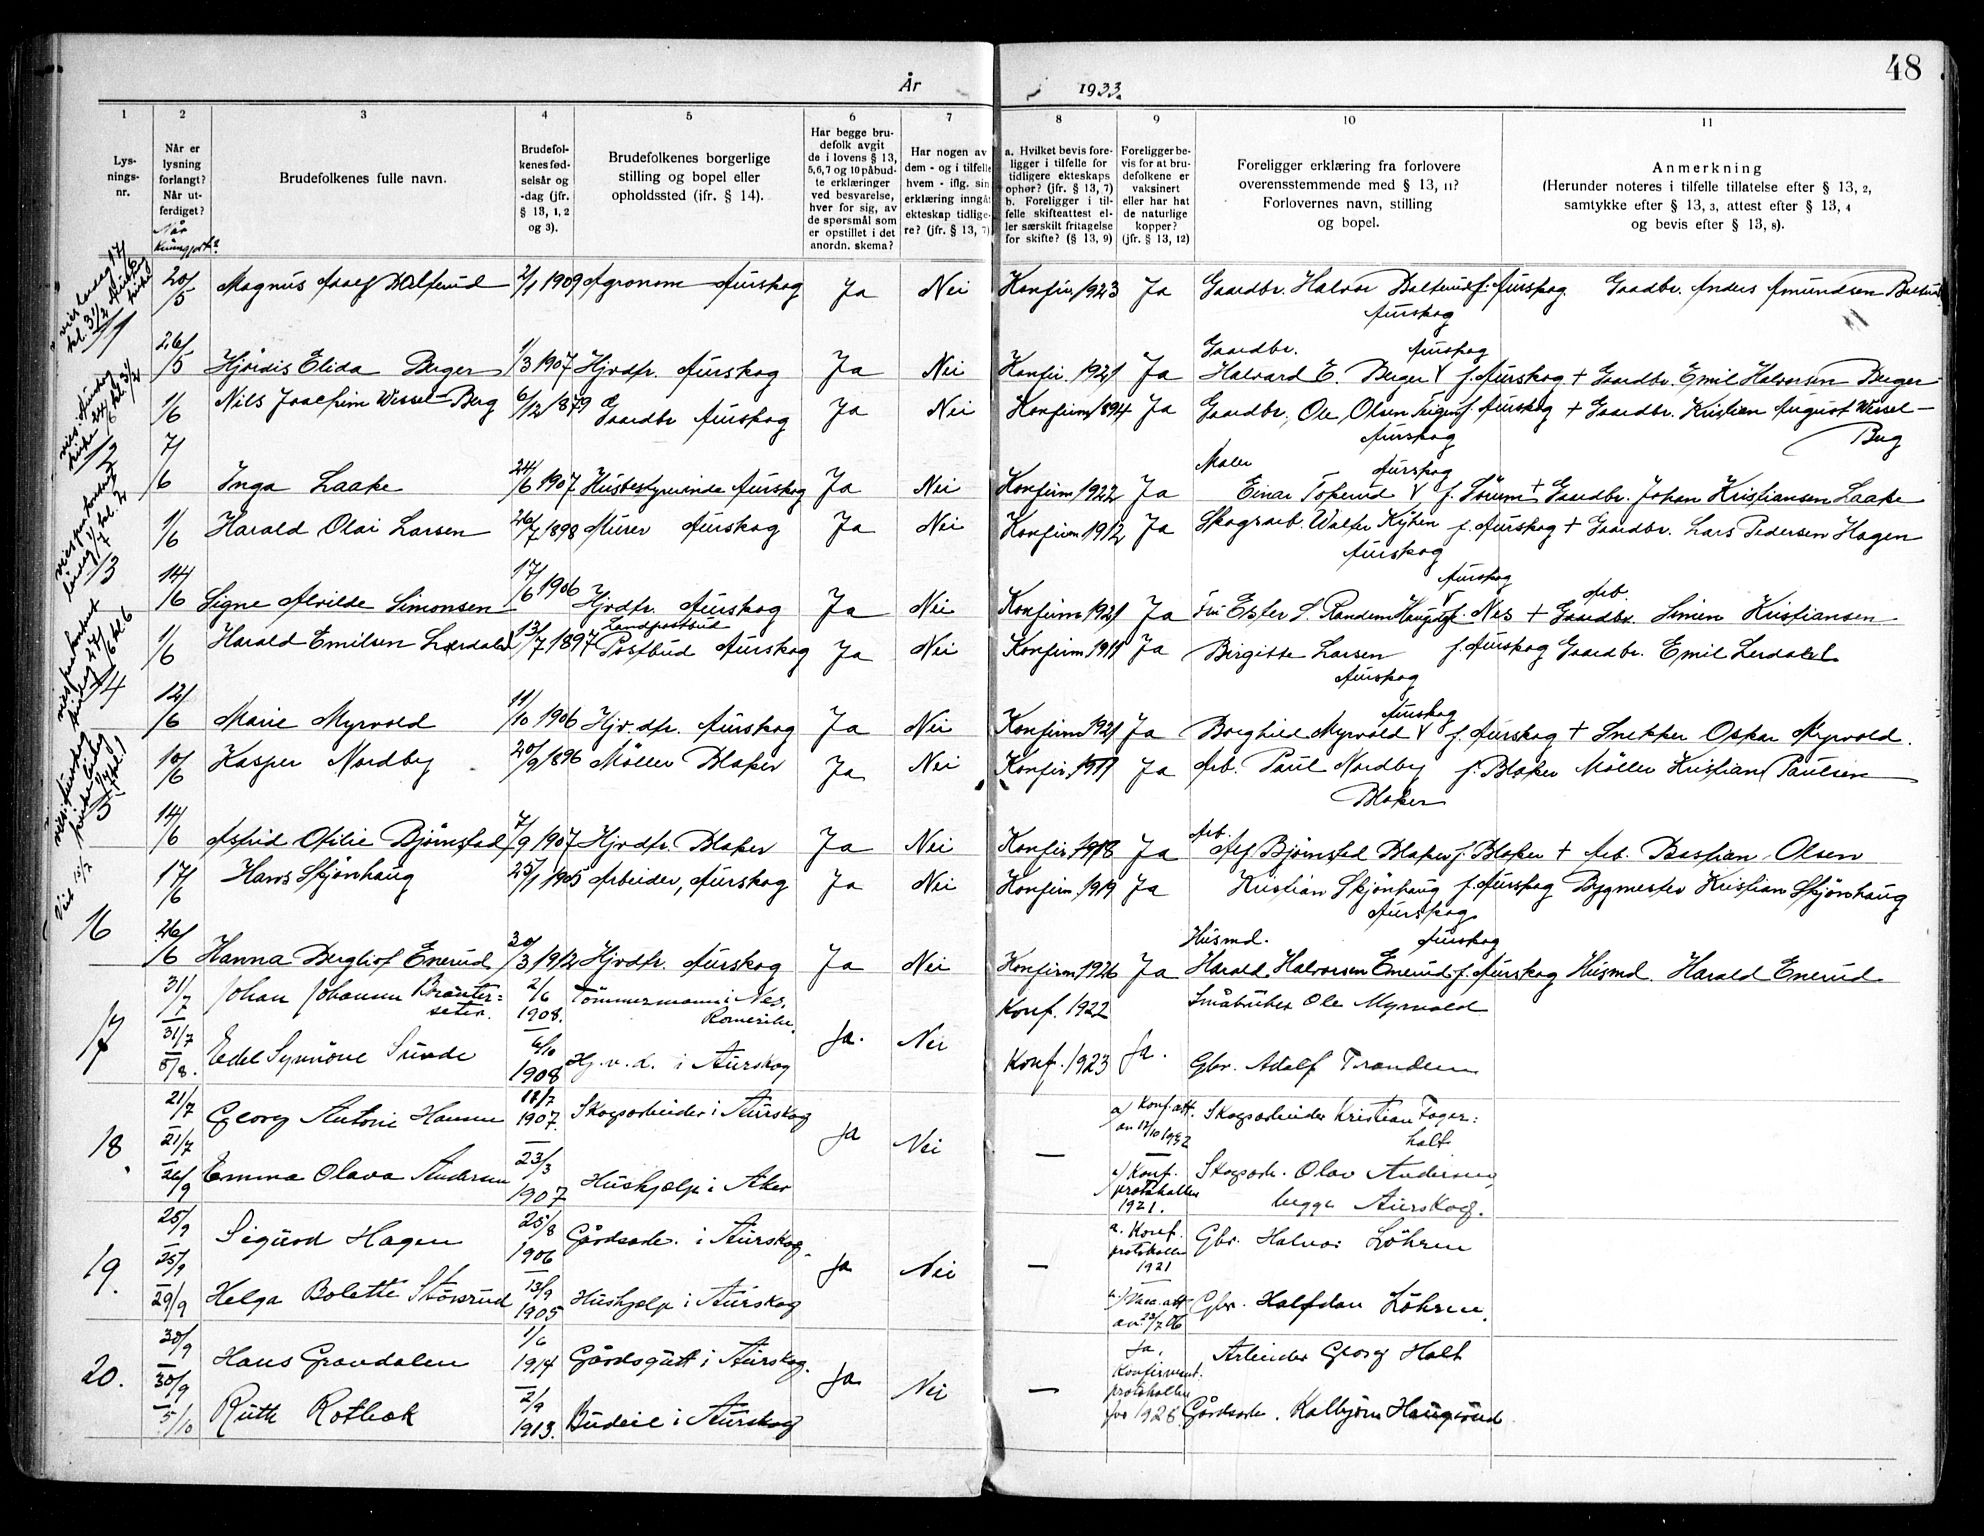 48
År 1933.
1 2 3 4 5 6 7 8 9 10 11
Lys-
nings-
nr.
Når er
lysning
forlangt?
Når ut-
ferdiget?
Når
kunngjort?
Brudefolkenes fulle navn.
Brudefol-
kenes fød-
selsår og
-dag (jfr.
§ 13, 1, 2
og 3).
Brudefolkenes borgerlige
stilling og bopel eller
opholdssted (jfr. § 14).
Har begge bru-
defolk avgit
de i lovens § 13,
5,6,7 og 10 påbud-
te erklæringer
ved besvarelse,
hver for sig, av
de spørsmål som
er opstillet i det
anordn. skema?
Har nogen av
dem - og i tilfelle
hvem - iflg. sin
erklæring inngåt
ekteskap tidlige-
re? (jfr. § 13, 7)
a. Hvilket bevis fore-
ligger i tilfelle for
tidligere ekteskaps
ophør? (jfr. § 13, 7)
b. Foreligger i til-
felle skifteattest el-
ler særskilt fritagelse
for skifte? (§ 13, 9)
Foreligger be-
vis for at bru-
defolkene er
vaksinert
eller har hat
de naturlige
kopper?
(jfr. § 13, 12)
Foreligger erklæring fra forlovere
overensstemmende med § 13, 11?
Forlovernes navn, stilling
og bopel.
Anmerkning
(Herunder noteres i tilfelle tillatelse efter § 13, 2,
samtykke efter § 13, 3, attest efter § 13, 4
og bevis efter § 13, 8).
20/5 Magnus 2/1 1909 Agronom Aurskog Ja Nei Konfir. 1923 Ja Gaardbr. Halvor f. Aurskog Gaardbr. Anders Amundsen
Aurskog
Gaardbr. Aurskog
26/5 Hjørdis Elida Berger 1/3 1907 Hjvdtr. Aurskog Ja Nei Konfir. 1921 Ja Halvard E. Berger f. Aurskog + Gaardbr. Emil Halvorsen Berger
12
1/6 Nils Joachim Wessel-Berg 6/12 1879 Gaardbr Aurskog Ja Nei Konfirm 1894 Ja Gaardbr. Ole Olsen f. Aurskog + Gaardbr. Kristian August Wessel-
Aurskog Berg
Maler Aurskog
7/6 Inga Laake 24/6 1907 Husbestyrerinde Aurskog Ja Nei Konfirm 1922 Ja Einar f. Sørum + Gaardbr. Johan Kristiansen Laake
13
1/6 Harald Olai Larsen 26/7 1898 Murer Aurskog Ja Nei Konfirm 1912 Ja Skogsarb. Walter f. Aurskog + Gaardbr. Lars Pedersen Hagen
Aurskog
Aurskog Arb.
14/6 Signe Alvilde Simonsen 17/6 1906 Hjvdtr. Aurskog Ja Nei Konfirm 1921 Ja Ester S. Randem f. Nes + Gaardbr. Simen Kristiansen
14
Landpostbud
1/6 Harald Emilsen Lerdahl 13/7 1897 Postbud Aurskog Ja Nei Konfirm 1911 Ja Birgitte Larsen f. Aurskog Gaardbr. Emil Lerdahl
Aurskog
Aurskog
12/6 Marie Myrvold 11/10 1906 Hjv.dtr. Aurskog Ja Nei Konfirm 1921 Ja Borghild Myrvold f. Aurskog + Snekker Oskar Myrvold.
15
10/6 Kasper Nordby 20/9 1896 Møller Blaker Ja Nei Konfir. 1911 Ja Arb. Paul Nordby f. Blaker Møller Kristian Paulsen
Blaker
Arb.
14/6 Astrid Otilie Bjørnstad 7/9 1907 Hjvdtr. Blaker Ja Nei Konfir. 1918 Ja Alf Bjørnstad Blaker f. Blaker + Arb. Bastian Olsen
Viet 15/7
16
17/6 Hans Skjønhaug 25/1 1905 Arbeider, Aurskog Ja Nei Konfirm. 1919 Ja Kristian Skjønhaug f. Aurskog Bygmester Kristian Skjønhaug
Aurskog
Husmd. Aurskog
26/6 Hanna Bergliot Enerud 30/3 1912 Hjvdtr. Aurskog Ja Nei Konfirm 1926 Ja Harald Halvorsen Enerud f. Aurskog Husmd. Harald Enerud
17
31/7 Johan Johannes Bråter-
seter. 2/6 1908. Tømmermann i Nes,
Romerike. Konf. 1922 Småbruker Ole Myrvold
31/7 Ja. Nei Ja.
5/8. Edel Synnöve Sunde 6/10 1908 Hj.v.d. i Aurskog Konf. 1923 Gbr. Adolf Tranden
18.
21/7 Georg Antoni Hansen 18/7 1907. Skogsarbeider i Aurskog a) Konf.att. Skogsarbeider Kristian Fager-
av 12/10 1932 holt
21/7 Ja Nei —
26/9 Emma Olava Andersen 23/3 1907 Hushjelp i Aker Konf. Skogsarb. Olav Andersen,
protokollen begge Aurskog.
1921.
19.
25/9 Sigurd Hagen 25/8 1906 Gårdsarb. i Aurskog. a. Konf. Gbr. Halvor Löhren
protokollen
1921
25/9 Ja Nei —
29/9 Helga Bolette Støvrud 13/9 1905 Hushjelp i Aurskog Vacc.att Gbr. Halfdan Löhren.
av 23/7 06
20.
30/9 Hans Grandalen 1/6 1914 Gårdsgutt i Aurskog. Ja, Arbeider Georg Holt
Konfirmant.
30/9 Ja Nei — protokollen
5/10 Ruth Rotbak 2/9 1913. Budeie i Aurskog for 1928 Gårdsarb. Kolbjørn Haugsrud